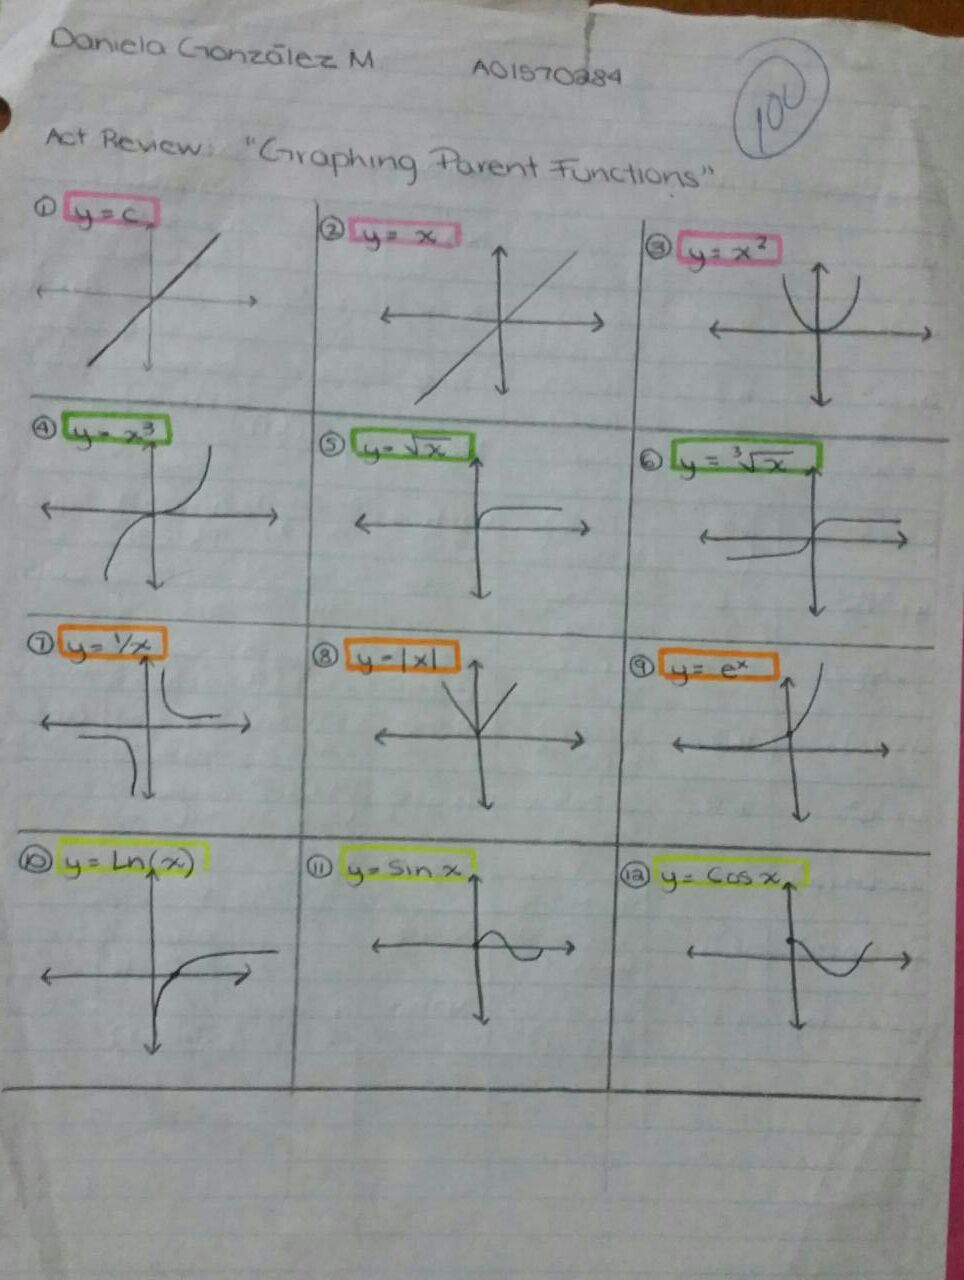 Daniela González M. A01570284
100
Act Review: "Graphing Parent Functions"
① y = c ② y = x ③ y = x²
④ y = x³ ⑤ y = √x ⑥ y = ³√x
⑦ y = 1/x ⑧ y = |x| ⑨ y = eˣ
⑩ y = Ln(x) ⑪ y = Sin x ⑫ y = Cos x